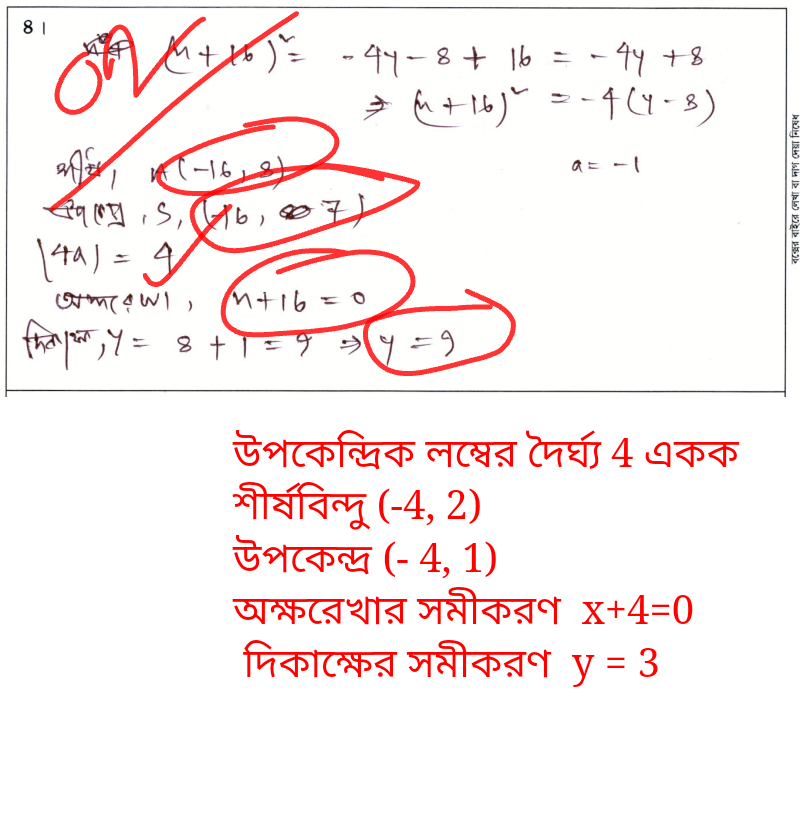 8।
(x+16)² = -4y-8+16 = -4y+8
⇒ (x+16)² = -4(y-8)
শীর্ষ, A(-16, 8) a = -1
উপকেন্দ্র, S, (-16, 7)
|4a| = 4
অক্ষরেখা, x+16 = 0
দিকাক্ষ, y = 8+1 = 9 ⇒ y = 9
বক্সের বাইরে লেখা বা দাগ দেয়া নিষেধ
উপকেন্দ্রিক লম্বের দৈর্ঘ্য 4 একক
শীর্ষবিন্দু (-4, 2)
উপকেন্দ্র (- 4, 1)
অক্ষরেখার সমীকরণ x+4=0
দিকাক্ষের সমীকরণ y = 3